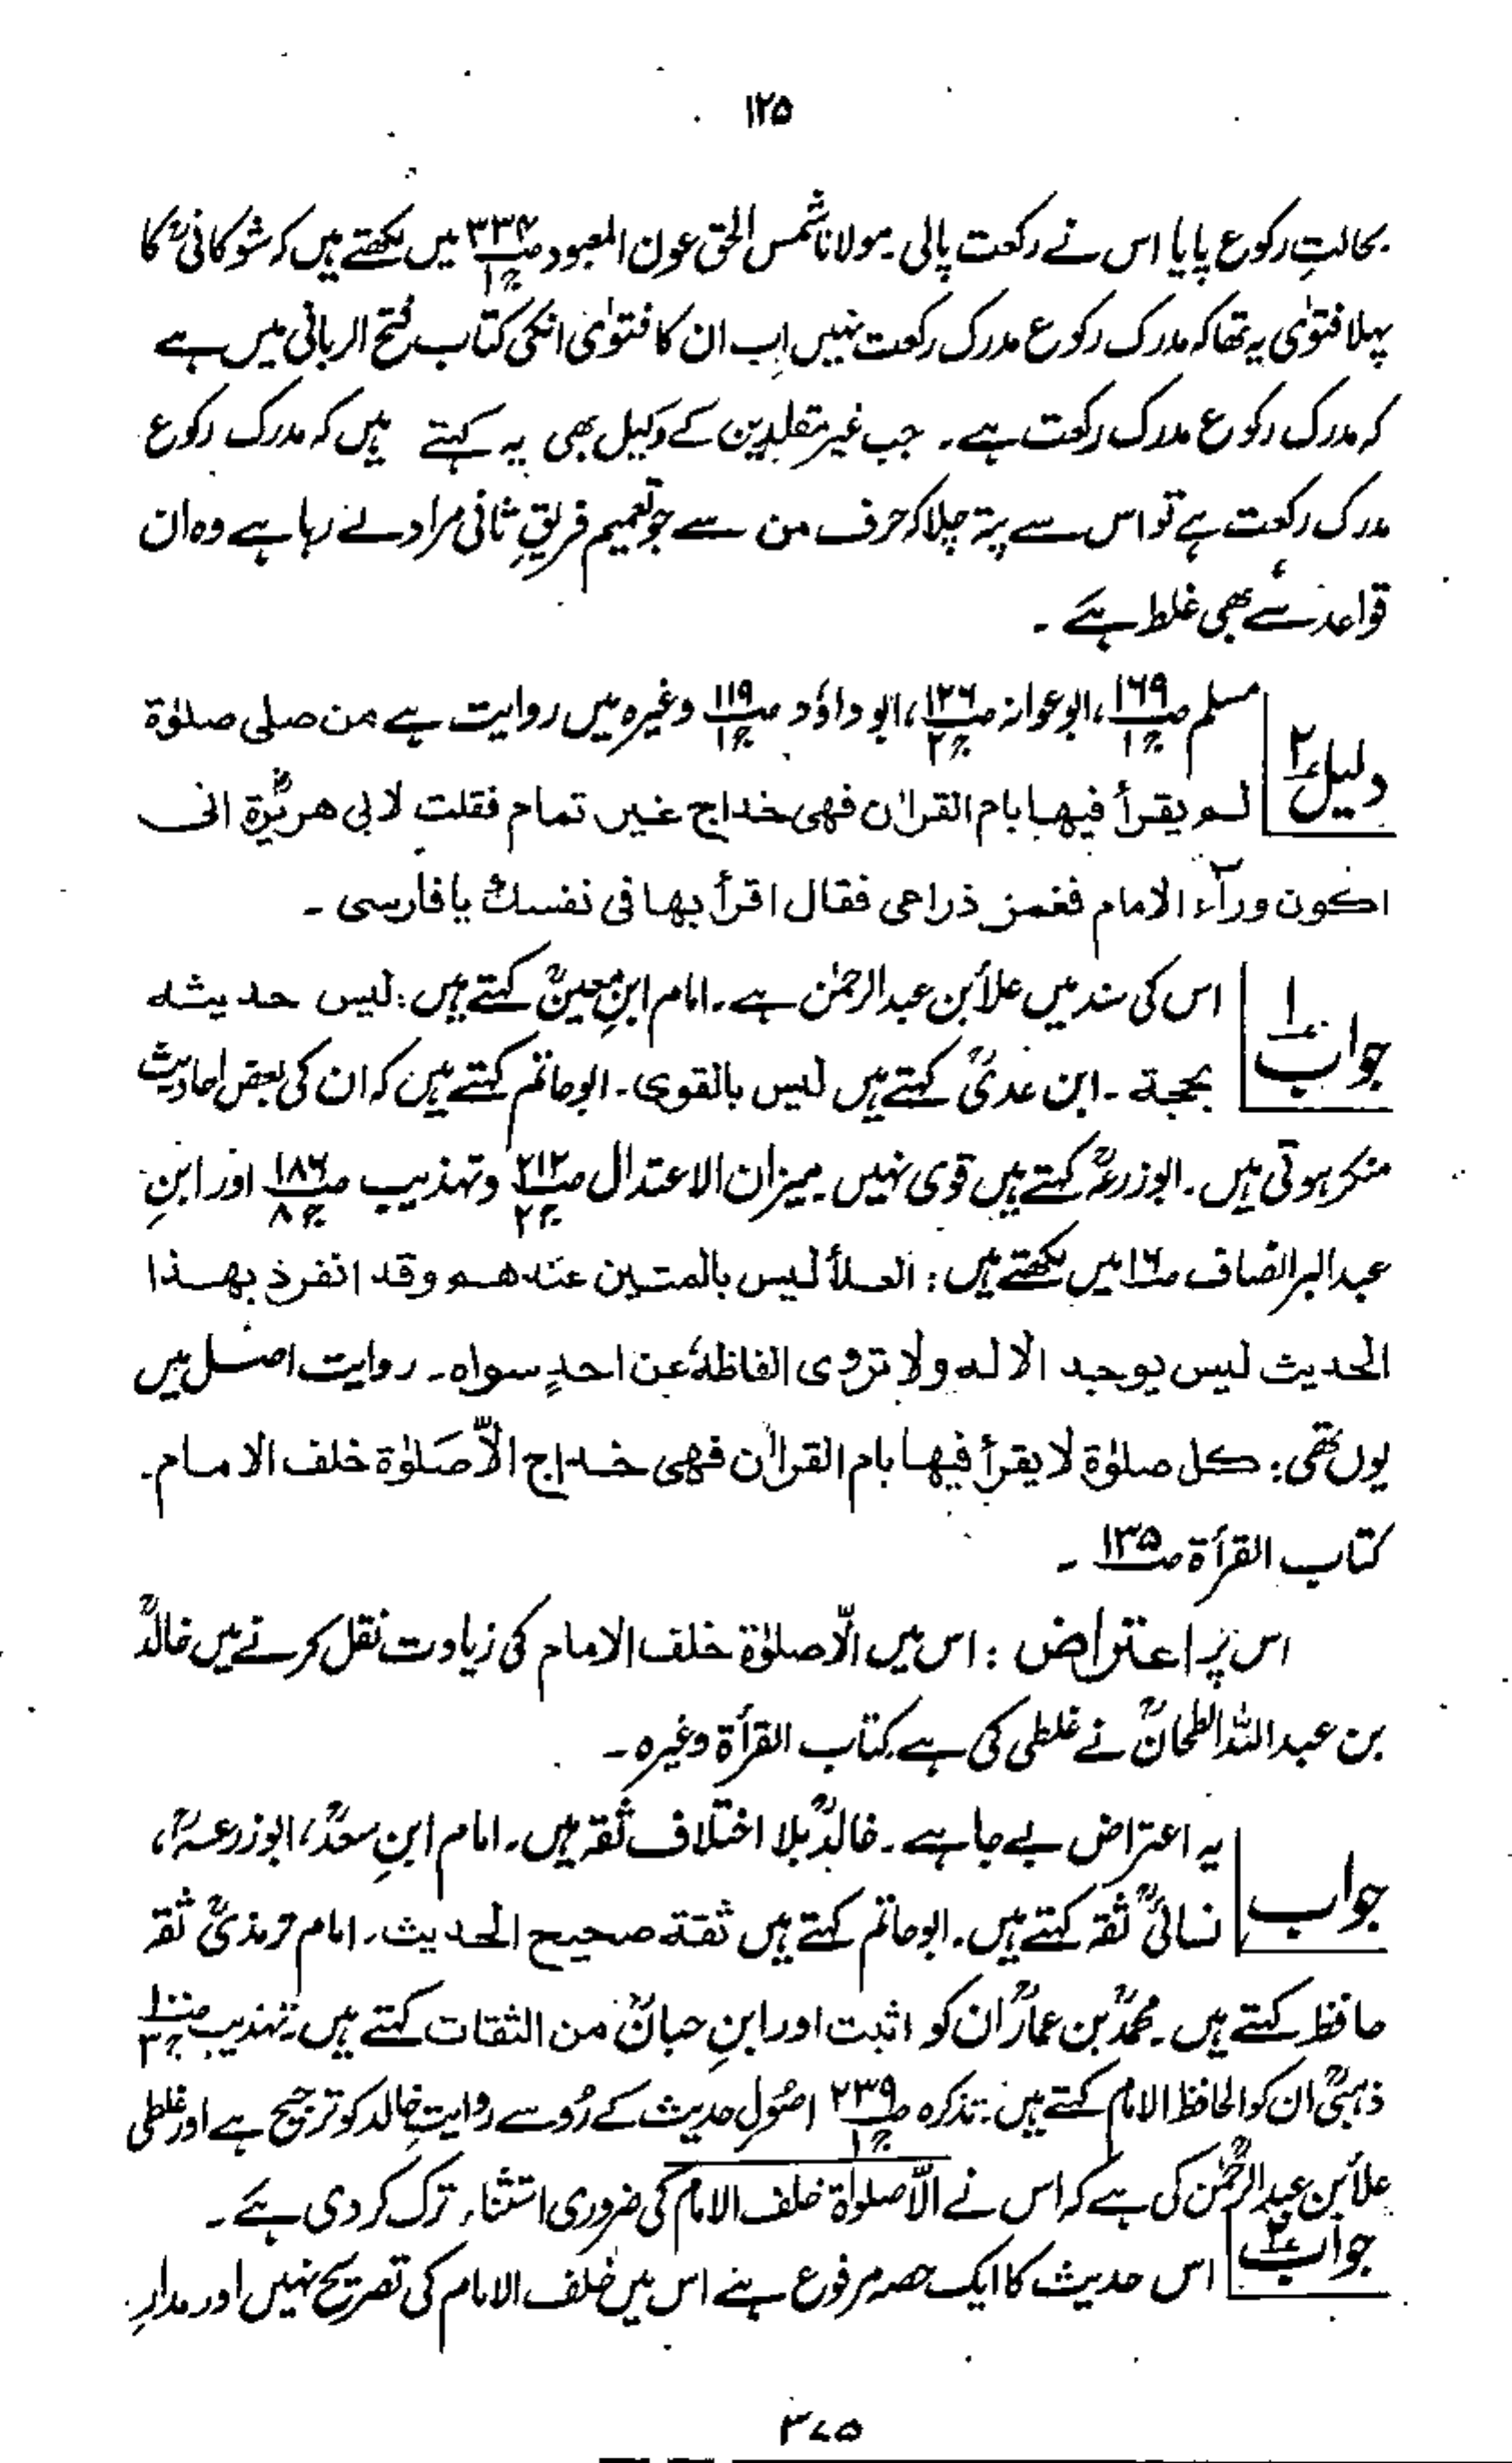 ۱۲۵
بحالتِ رکوع پایا اس نے رکعت پالی۔ مولانا شمس الحق عون المعبود ص۳۳۴ ج۱ میں لکھتے ہیں کہ شوکانیؒ کا
پہلا فتوٰی یہ تھا کہ مدرک رکوع مدرک رکعت نہیں اب ان کا فتوٰی انکی کتاب فتح الربانی میں ہے
کہ مدرک رکوع مدرک رکعت ہے۔ جب غیر مقلدین کے وکیل بھی یہ کہتے ہیں کہ مدرک رکوع
مدرک رکعت ہے تو اس سے پتہ چلا کہ حرف من سے جو تعمیم فریقِ ثانی مراد لے رہا ہے وہ ان
قواعد سے بھی غلط ہے۔
دلیل ۲ مسلم ص۱۶۹ ج۱، ابوعوانہ ص۱۲۶ ج۲، ابوداؤد ص۱۱۹ ج۱ وغیرہ میں روایت ہے من صلی صلوٰۃ
لم یقرأ فیھا بام القراٰن فھی خداج غیر تمام فقلت لابی ھریرۃؓ انی
اکون ورآء الامام فغمز ذراعی فقال اقرأ بھا فی نفسك یا فارسی۔
جواب ۱ اس کی سند میں علاٴ بن عبدالرحمٰن ہے۔ امام ابنِ معینؒ کہتے ہیں: لیس حدیثہ
بحجۃ۔ ابن عدیؒ کہتے ہیں لیس بالقوی۔ ابوحاتم کہتے ہیں کہ ان کی بعض احادیث
منکر ہوتی ہیں۔ ابوزرعہؒ کہتے ہیں قوی نہیں۔ میزان الاعتدال ص۲۱۲ ج۲ وتہذیب ص۱۸۶ ج۸ اور ابنِ
عبدالبر انصاف ص۱۶ میں لکھتے ہیں: العلاٴ لیس بالمتین عندھم وقد انفرد بھذا
الحدیث لیس یوجد الا لہ ولا تروی الفاظہٗ عن احدٍ سواہ۔ روایت اصل میں
یوں تھی: کل صلوٰۃ لا یقرأ فیھا بام القراٰن فھی خداج الّا صَلوٰۃ خلف الامام۔
کتاب القرأۃ ص۱۳۵۔
اس پر اعتراض: اس میں الّا صلوٰۃ خلف الامام کی زیادت نقل کرنے میں خالدؒ
بن عبداللہ الطحانؒ نے غلطی کی ہے کتاب القرأۃ وغیرہ۔
جواب یہ اعتراض بے جا ہے۔ خالدؒ بلا اختلاف ثقہ ہیں۔ امام ابنِ سعدؒ، ابوزرعہؒ،
نسائیؒ ثقہ کہتے ہیں۔ ابوحاتم کہتے ہیں ثقۃ صحیح الحدیث۔ امام ترمذیؒ ثقہ
حافظ کہتے ہیں۔ محمدؒ بن عمارؒ ان کو اثبت اور ابنِ حبانؒ من الثقات کہتے ہیں۔ تہذیب ص۱۰۰ ج۳
ذہبیؒ ان کو الحافظ الامام کہتے ہیں: تذکرہ ص۲۳۹ ج۱ اصُولِ حدیث کے رُو سے روایتِ خالد کو ترجیح ہے اور غلطی
علاٴ بن عبدالرحمٰنؒ کی ہے کہ اس نے الّا صلوٰۃ خلف الامام کی ضروری استثناء ترک کر دی ہے۔
جواب ۲ اس حدیث کا ایک حصہ مرفوع ہے اس میں خلف الامام کی تصریح نہیں اور مدارِ
۳۷۵